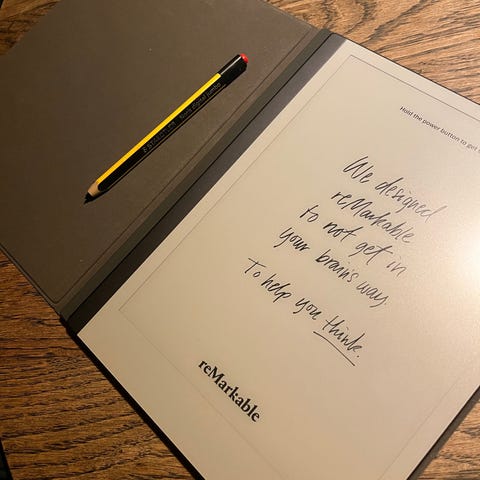 Hold the power button to get
We designed
reMarkable
to not get in
your brain's way.
To help you think.
reMarkable
STAEDTLER Noris digital jumbo